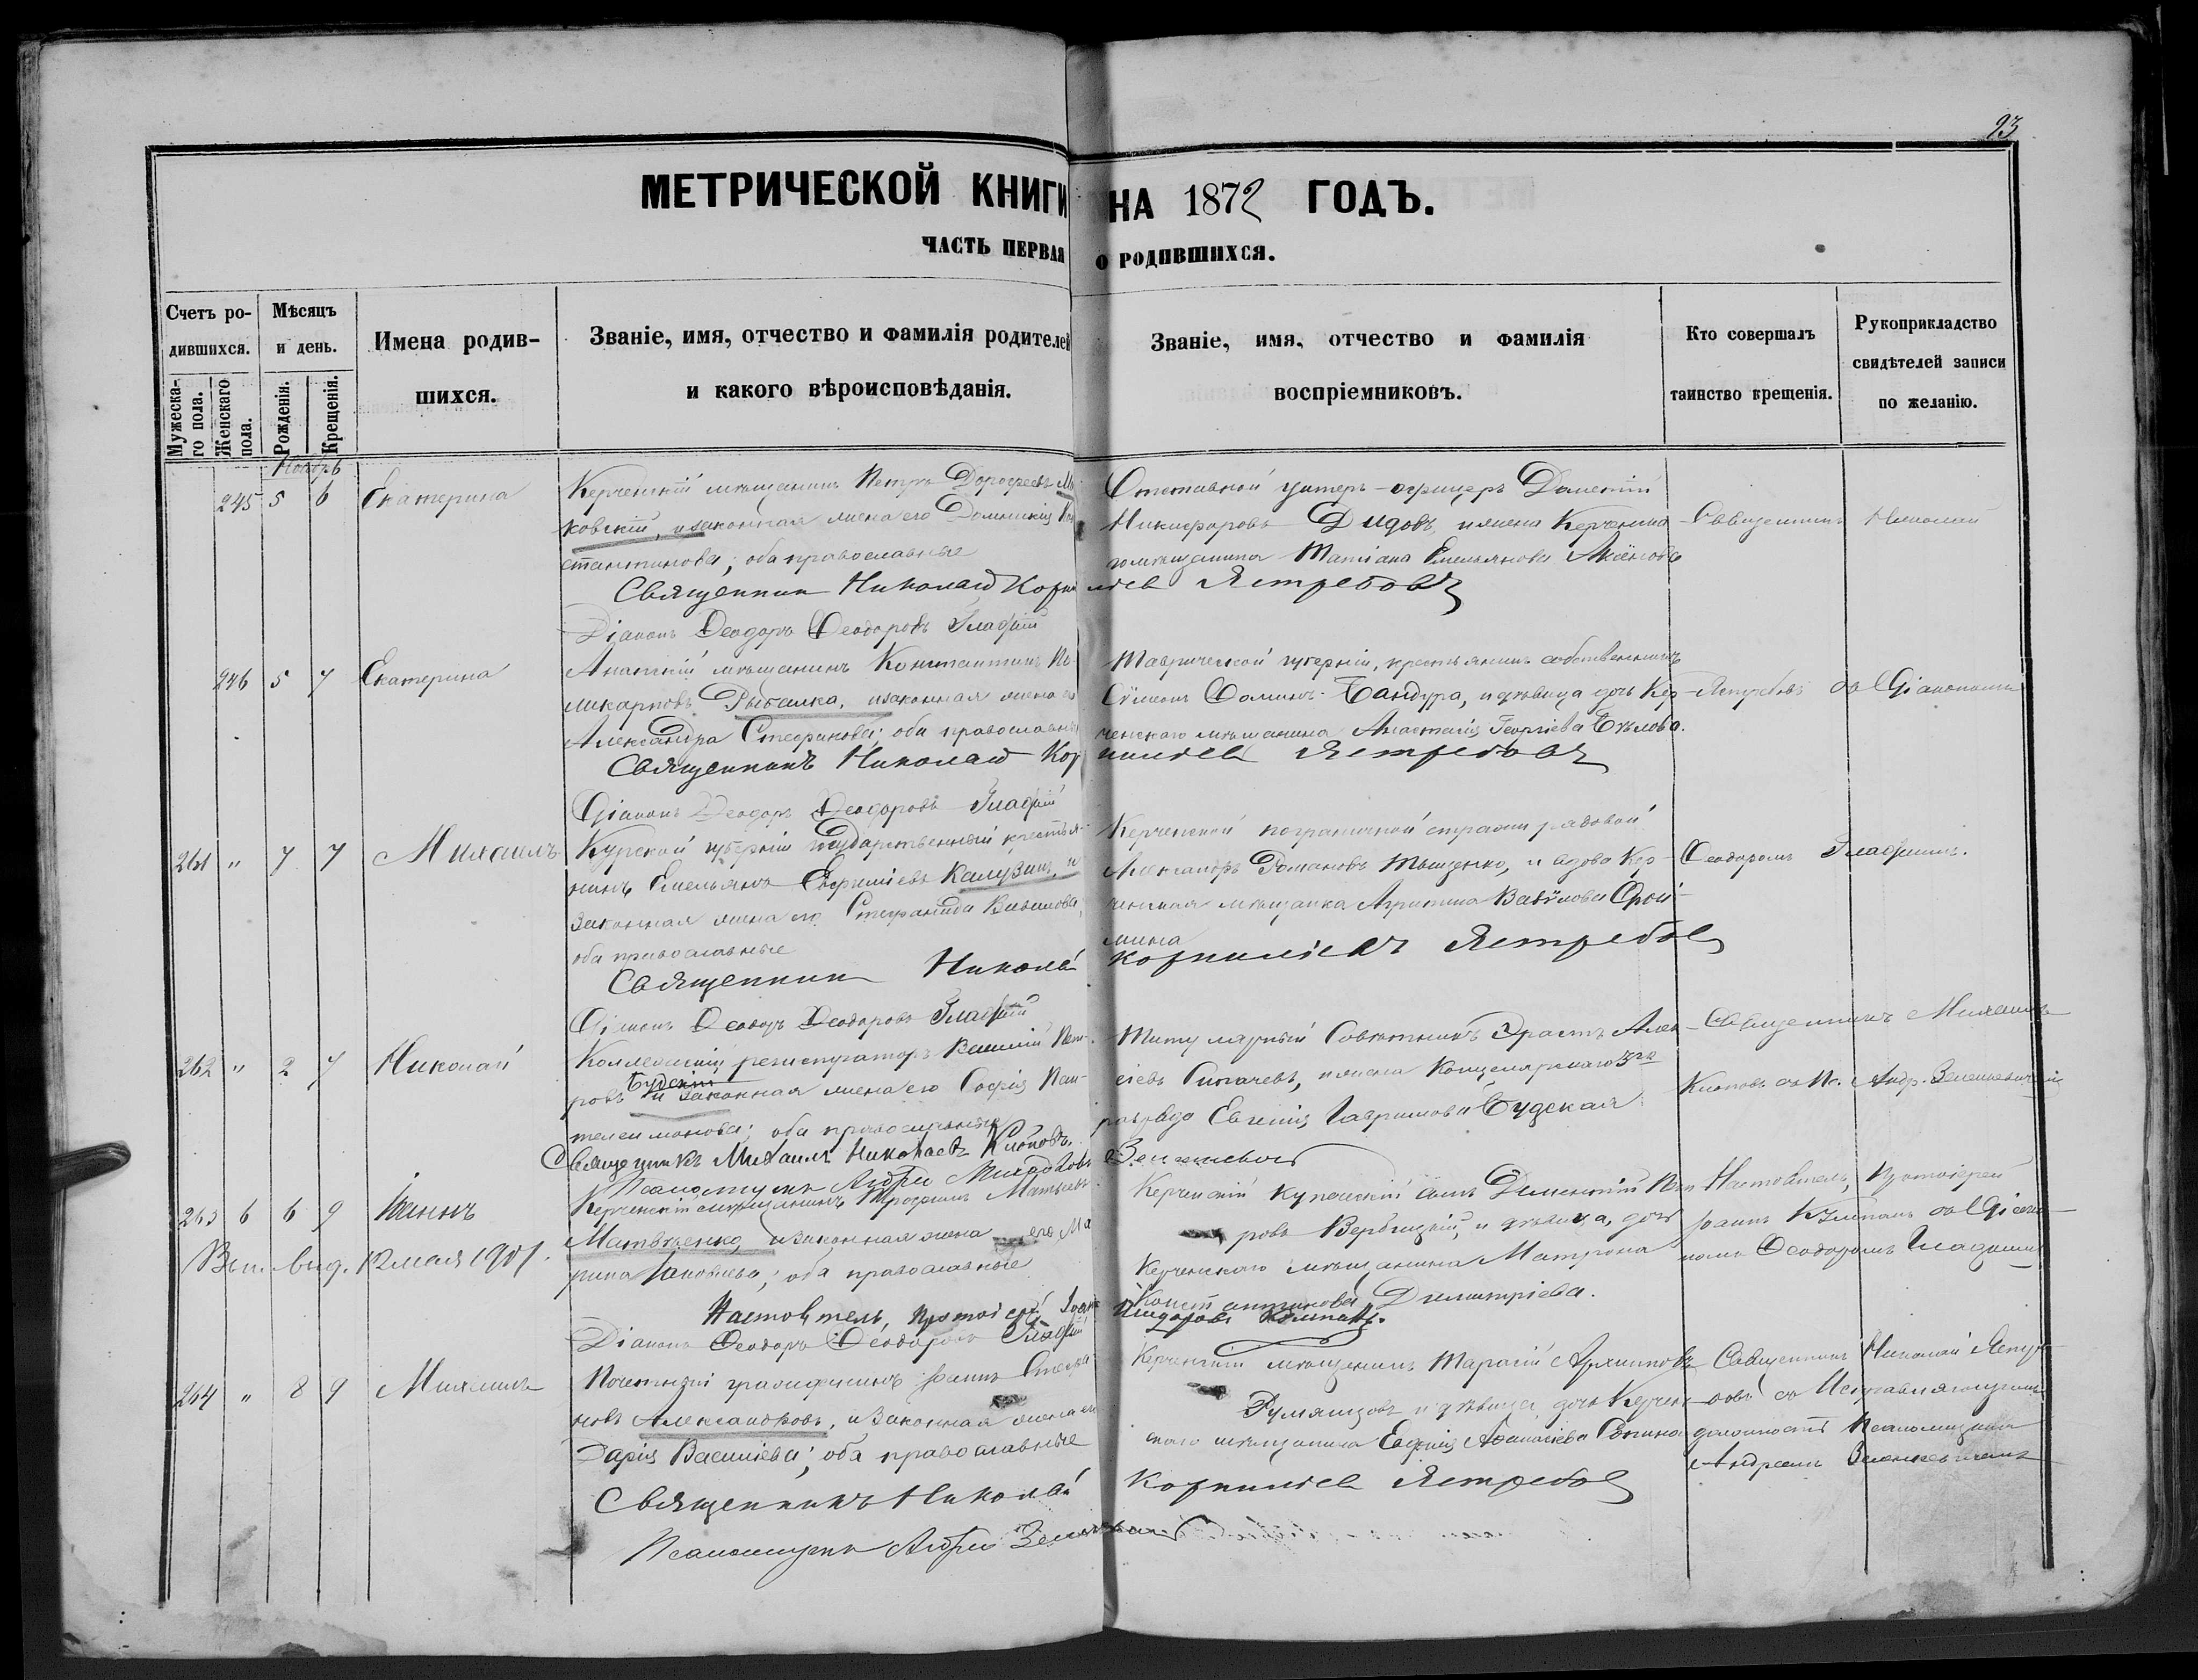 93
МЕТРИЧЕСКОЙ КНИГИ НА 1872 ГОДЪ.
ЧАСТЬ ПЕРВАЯ О РОДИВШИХСЯ.
Счетъ родившихся.
Мужескаго пола.
Женскаго пола.
Мѣсяцъ и день.
Рожденія.
Крещенія.
Имена родившихся.
Званіе, имя, отчество и фамилія родителей
и какого вѣроисповѣданія.
Званіе, имя, отчество и фамилія
воспріемниковъ.
Кто совершалъ
таинство крещенія.
Рукоприкладство
свидѣтелей записи
по желанію.
Ноябрь
245 5 6 Екатерина
Керченскій мѣщанинъ Петръ Дорофеевъ
ковскій, и законная жена его Домникія
стантинова; оба православные
Отставной унтеръ-офицеръ Дометій
Никифоровъ Дидовъ, и жена Керченска
го мѣщанина Татіана Емельянова
Священникъ Николай
Священник Николай Корнилиев Ястребовъ
Діаконъ Ѳеодоръ Ѳеодоровъ Гладкій
246 5 7 Екатерина
Анапскій мѣщанинъ Константинъ По-
ликарповъ Рыбалка, и законная жена его
Александра Стефанова; оба православные
Таврической губерніи, крестьянинъ собственникъ
Сѵмеонъ Ѳоминъ Бандура, и дѣвица дочь Кер-
ченскаго мѣщанина Анастасія Георгіева Бѣлова.
Ястребовъ съ Діакономъ
Священникъ Николай Корнилиев Ястребовъ
Діаконъ Ѳеодоръ Ѳеодоровъ Гладкій
261 " 7 7 Михаилъ
Курской губерніи Государственный крестья-
нинъ Емельянъ Калузинъ, и
законная жена его Стефанида Вавилова,
оба православные
Керченской пограничной стражи рядовой
Александръ Романовъ Тыщенко, и вдова Кер-
ченская мѣщанка Агрипина
Ѳеодоромъ Гладкимъ.
Священник Николай Корнилиевъ Ястребов
Діаконъ Ѳеодоръ Ѳеодоровъ Гладкій
262 " 2 7 Николай
Коллежскій регистраторъ Василій Пет-
ровъ Будскій и законная жена его Софія Пан-
телеимонова; оба православные
Титулярный Совѣтникъ Эрастъ Алек-
сѣевъ и жена Канцелярскаго 3го
разряда Евгенія Гаврилова Будская
Священникъ Михаилъ
Клоповъ съ Пс. Андр. Зеленкевичемъ
Священникъ Михаилъ Николаевъ Клоповъ.
Псаломщикъ Андрей Зеленкевич
263 6 6 9 Іоаннъ
Вып. выд. 12 мая 1901.
Керченскій мѣщанинъ Трофимъ Матвѣевъ
Матвѣенко, и законная жена его Ма
рина Іаковлева; оба православные
Керченскій купеческій сынъ Дементій Пет
ровъ Вербицкій, и дѣвица, дочь
Керченскаго мѣщанина Матрона
Константинова Димитріева.
Настоятель, протоіерей
Іоаннъ Кумпанъ съ Діако-
номъ Ѳеодоромъ Гладкимъ
Настоятель, протоіерей Іоаннъ
Діаконъ Ѳеодоръ Ѳеодоровъ Гладкій
264 " 8 9 Михаилъ
Почетный гражданинъ Іоаннъ Стефа-
новъ Александровъ, и законная жена его
Дарія Васильева; оба православные
Керченскій мѣщанинъ Тарасій Архиповъ
Румянцовъ и дѣвица дочь Керчен
скаго мѣщанина Евдокія Аѳанасіева Репина
Священникъ Николай Ястре-
бовъ съ Исправляющимъ
должность Псаломщика
Андреемъ Зеленкевичемъ
Священникъ Николай Корнилиев Ястребов
Псаломщикъ Андрей Зеленкевич